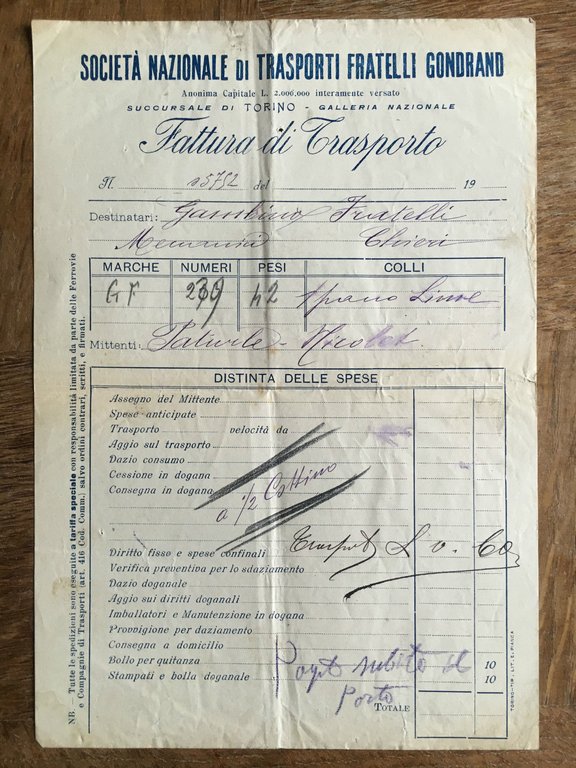 SOCIETÀ NAZIONALE DI TRASPORTI FRATELLI GONDRAND
Anonima Capitale L. 2.000,000 interamente versato
SUCCURSALE DI TORINO - GALLERIA NAZIONALE
Fattura di Trasporto
N. 25752 del 19
Destinatari: Gambino Fratelli
Chieri
MARCHE NUMERI PESI COLLI
GF 239 42
Mittenti: Paturle - Nicolet
DISTINTA DELLE SPESE
Assegno del Mittente
Spese anticipate
Trasporto velocità da
Aggio sul trasporto
Dazio consumo
Cessione in dogana
Consegna in dogana
a 1/2 Cottino
Diritto fisso e spese confinali Trasporto L 0. 60
Verifica preventiva per lo sdaziamento
Dazio doganale
Aggio sui diritti doganali
Imballatori e Manutenzione in dogana
Provvigione per daziamento
Consegna a domicilio
Bollo per quitanza 10
Stampati e bolla doganale 10
subito
Porto
TOTALE
NB. - Tutte le spedizioni sono eseguite a tariffa speciale con responsabilità limitata da parte delle Ferrovie
e Compagnie di Trasporti (art. 416 Cod. Comm.) salvo ordini contrari, scritti, e firmati.
TORINO-TIP. LIT. E. PIANCA